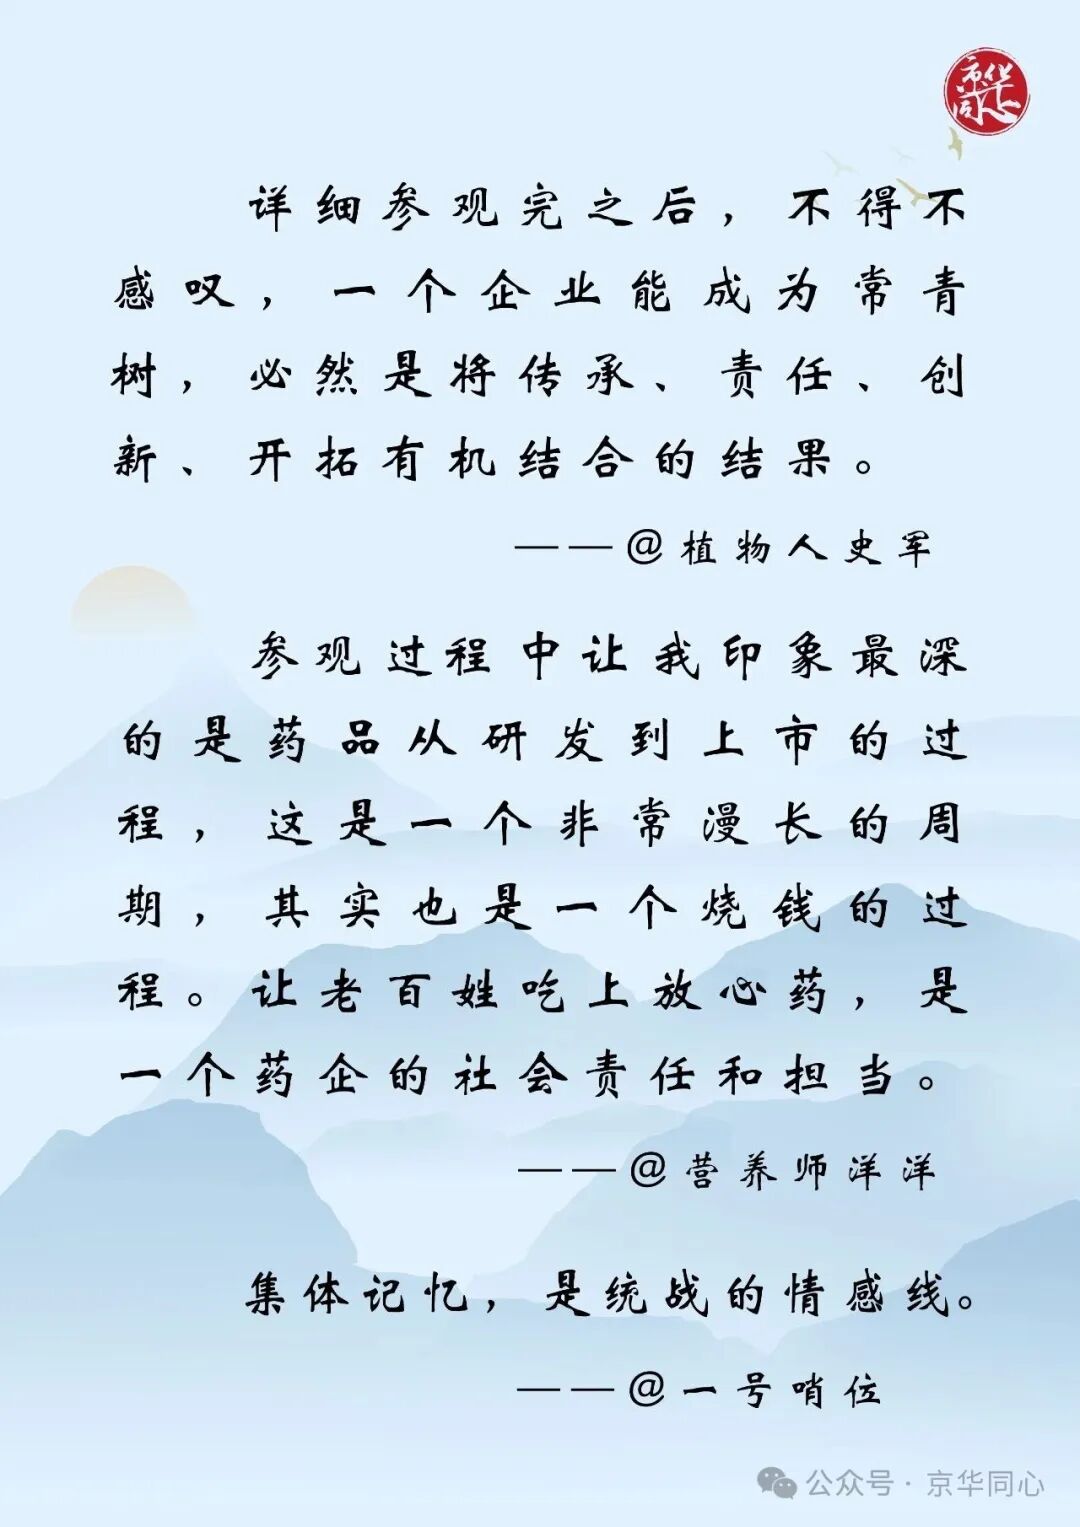 京华
同心
详细参观完之后，不得不
感叹，一个企业能成为常青
树，必然是将传承、责任、创
新、开拓有机结合的结果。
——@植物人史军
参观过程中让我印象最深
的是药品从研发到上市的过
程，这是一个非常漫长的周
期，其实也是一个烧钱的过
程。让老百姓吃上放心药，是
一个药企的社会责任和担当。
——@营养师洋洋
集体记忆，是统战的情感线。
——@一号哨位
公众号·京华同心